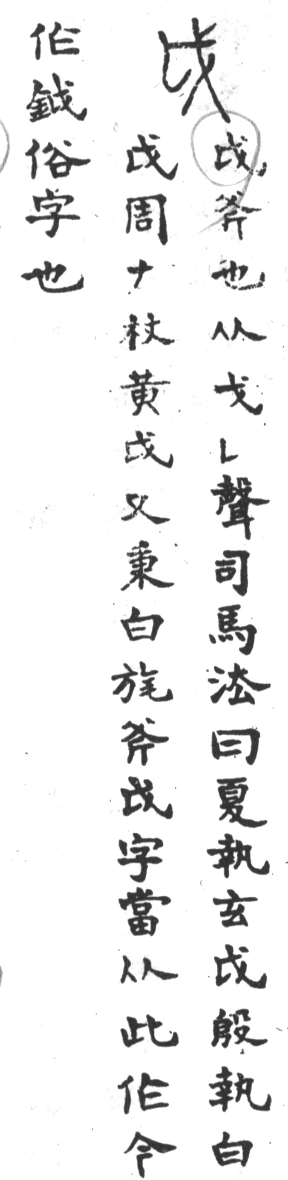 戉
戉斧也从戈𠄌聲司馬法曰夏執玄戉殷執白
戉周𠂇杖黃戉又秉白旄斧戉字當从此作今
作鉞俗字也